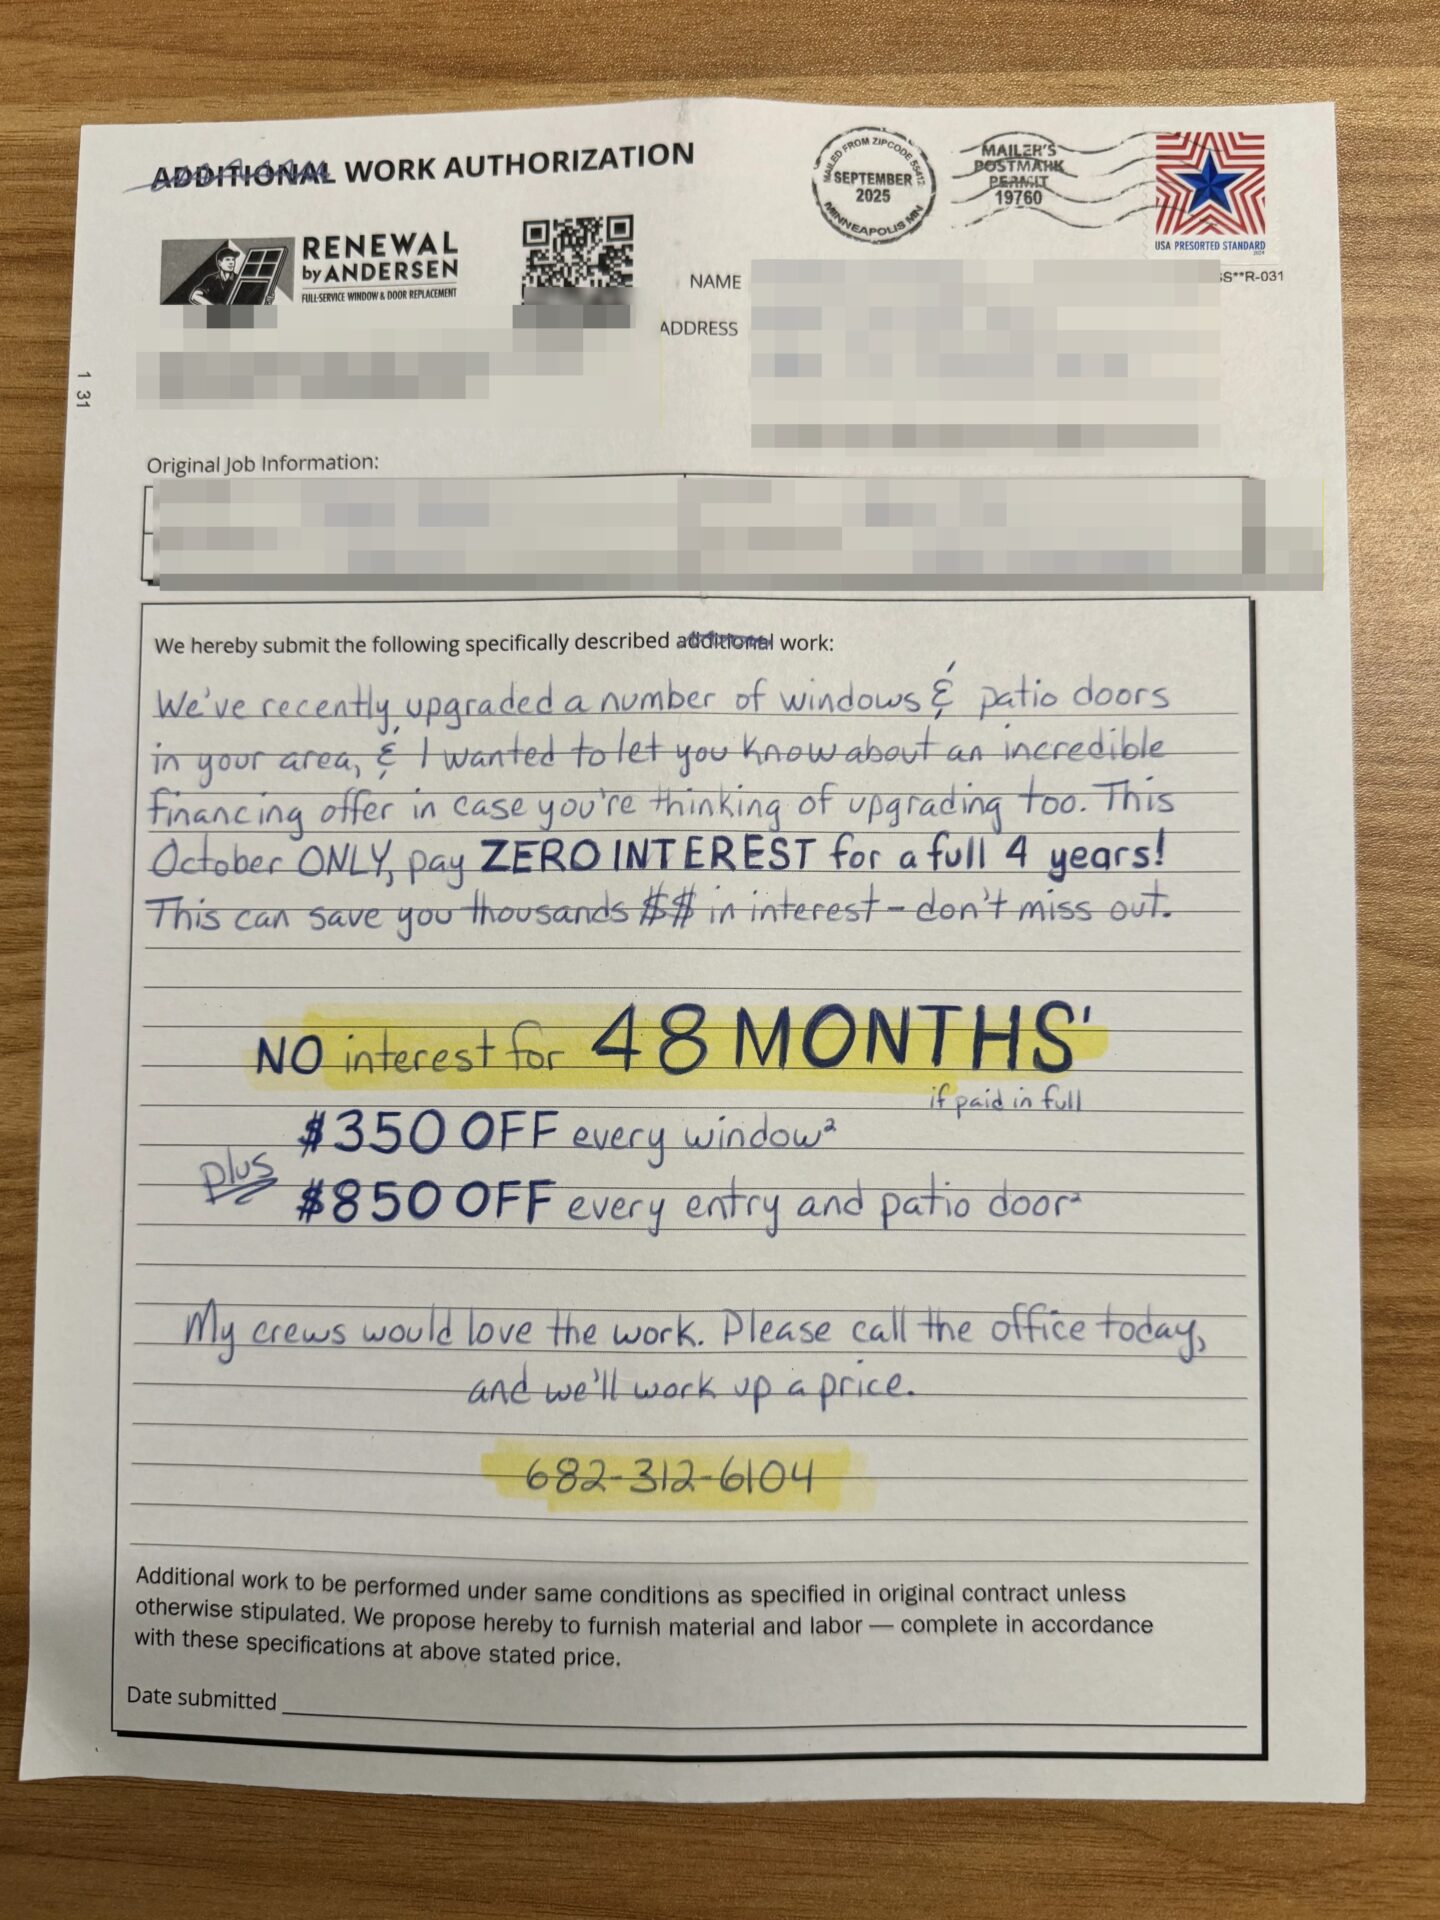 ADDITIONAL WORK AUTHORIZATION
MAILED FROM ZIPCODE 55412
SEPTEMBER
2025
MINNEAPOLIS MN
MAILER'S
POSTMARK
PERMIT
19760
USA PRESORTED STANDARD
RENEWAL
by ANDERSEN
FULL-SERVICE WINDOW & DOOR REPLACEMENT
NAME
SS**R-031
ADDRESS
1 31
Original Job Information:
We hereby submit the following specifically described additional work:
We've recently upgraded a number of windows & patio doors
in your area, & I wanted to let you know about an incredible
financing offer in case you're thinking of upgrading too. This
October ONLY, pay ZERO INTEREST for a full 4 years!
This can save you thousands $$ in interest – don't miss out.
NO interest for 48 MONTHS¹
if paid in full
$350 OFF every window²
plus
$850 OFF every entry and patio door²
My crews would love the work. Please call the office today,
and we'll work up a price.
682-312-6104
Additional work to be performed under same conditions as specified in original contract unless
otherwise stipulated. We propose hereby to furnish material and labor — complete in accordance
with these specifications at above stated price.
Date submitted